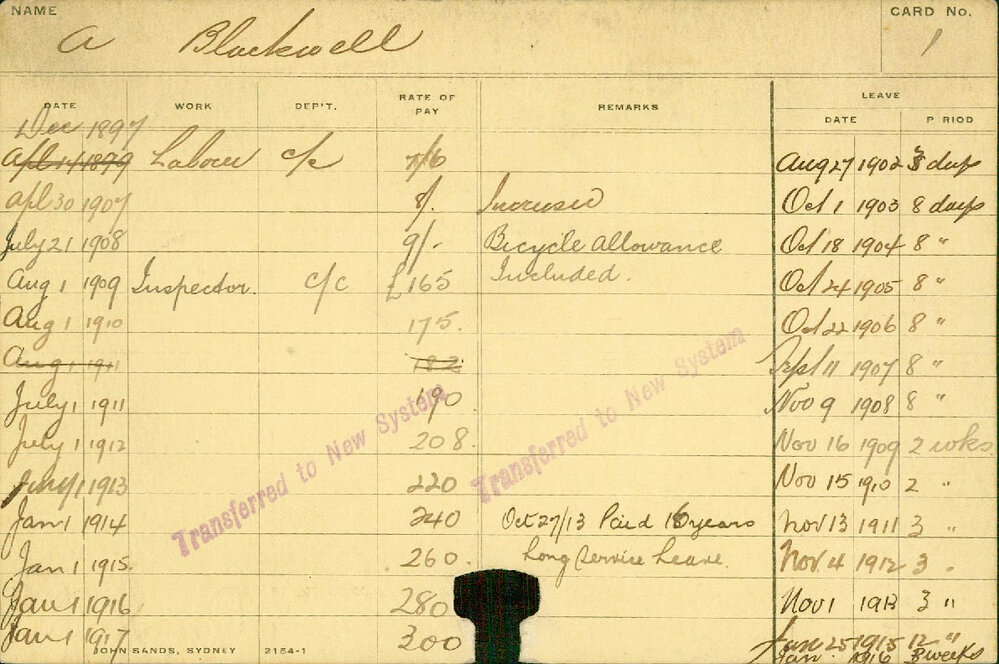 NAME CARD No.
A Blackwell 1
DATE WORK DEP'T. RATE OF PAY REMARKS LEAVE
DATE P RIOD
Dec 1897
Apl 14 1899 Labour c/c 7/6 Aug 27 1902 3 days
Apl 30 1907 8/. Increased Oct 1 1903 8 days
July 21 1908 9/- Bicycle Allowance Oct 18 1904 8 "
Aug 1 1909 Inspector. c/c £165 Included. Oct 24 1905 8 "
Aug 1 1910 175. Oct 22 1906 8 "
Aug 1 1911 182 Sept 11 1907 8 "
July 1 1911 190 Nov 9 1908 8 "
July 1 1912 208. Nov 16 1909 2 wks.
1 1913 220 Nov 15 1910 2 "
Jan 1 1914 240 Oct 27/13 Paid years Nov 13 1911 3 "
Jan 1 1915. 260. Long Service Leave. Nov 4 1912 3 "
Jan 1 1916 280 Nov 1 1913 3 "
Jan 1 1917 300 Jan 25 1915 12 "
Jan. 1916 3 weeks
JOHN SANDS, SYDNEY 2154-1
Transferred to New System
Transferred to New System